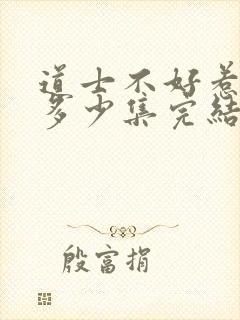 道士不好惹
多少集完結
殷富捐